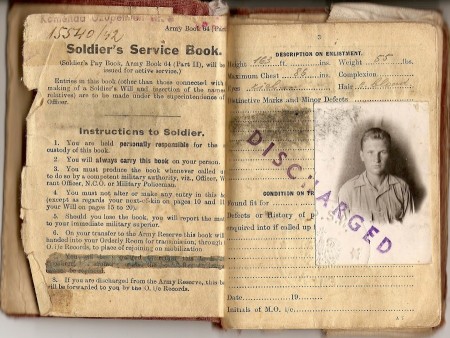 Army Book 64
15540/42
Soldier's Service Book.
(Soldier's Pay Book, Army Book 64 (Part II), will be
issued for active service.)
Entries in this book (other than those connected with
making of a Soldier's Will and insertion of the names
relatives) are to be made under the superintendence of
Officer.
Instructions to Soldier.
1. You are held personally responsible for the
custody of this book.
2. You will always carry this book on your person.
3. You must produce the book whenever called
to do so by a competent military authority, viz., Officer,
rant Officer, N.C.O. or Military Policeman.
4. You must not alter or make any entry in this
(except as regards your next-of-kin on pages 10 and
your Will on pages 15 to 20).
5. Should you lose the book, you will report the
to your immediate military superior.
6. On your transfer to the Army Reserve this book will
handed into your Orderly Room for transmission, through
Records, to place of rejoining on mobilization.
8. If you are discharged from the Army Reserve, this
will be forwarded to you by the O. i/c Records.
3
DESCRIPTION ON ENLISTMENT.
Height 163 ft. ins. Weight 55 lbs.
Maximum Chest ins. Complexion
Eyes Hair
Distinctive Marks and Minor Defects
CONDITION ON
Found fit for
Defects or History of
enquired into if called up
DISCHARGED
Date 19
Initials of M.O. i/c